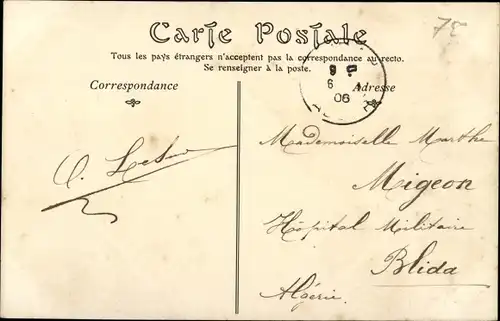 75
Carte Postale
Tous les pays étrangers n'acceptent pas la correspondance au recto.
Se renseigner à la poste.
Correspondance
Adresse
9
6
06
Mademoiselle Marthe
Migeon
Hôpital Militaire
Blida
Algérie.